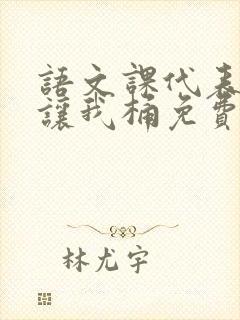 語文課代表
讓我桶免費
林尤宇